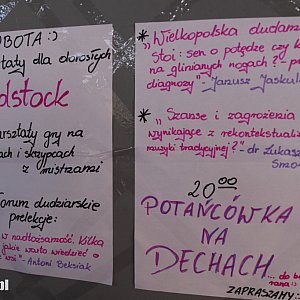 OBOTA :)
taty dla dorosłych
dstock
rsztaty gry na
ach i skrzypcach
z mistrzami
orum dudziarskie
prelekcje:
w nadtożsamość. Kilka
jakie warto wiedzieć o
- Antoni Beksiak
* "Wielkopolska dudami
stoi: sen o potędze czy k
na glinianych nogach?" - p
diagnozy - Janusz Jaskul
* "Szanse i zagrożenia
wynikające z rekontekstualiz
muzyki tradycyjnej?" - dr Łukasz
Smo
20 00
POTAŃCÓWKA
NA
DECHACH
... do b
rana
ZAPRASZAMY
.pl